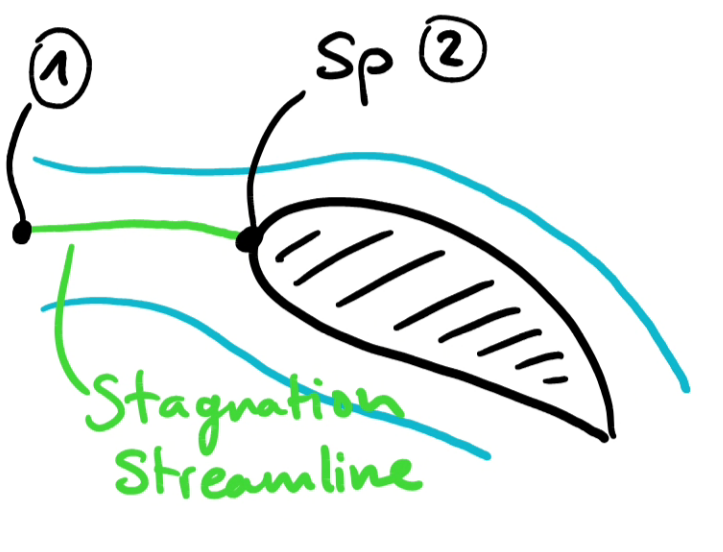 1
Sp 2
Stagnation
Streamline